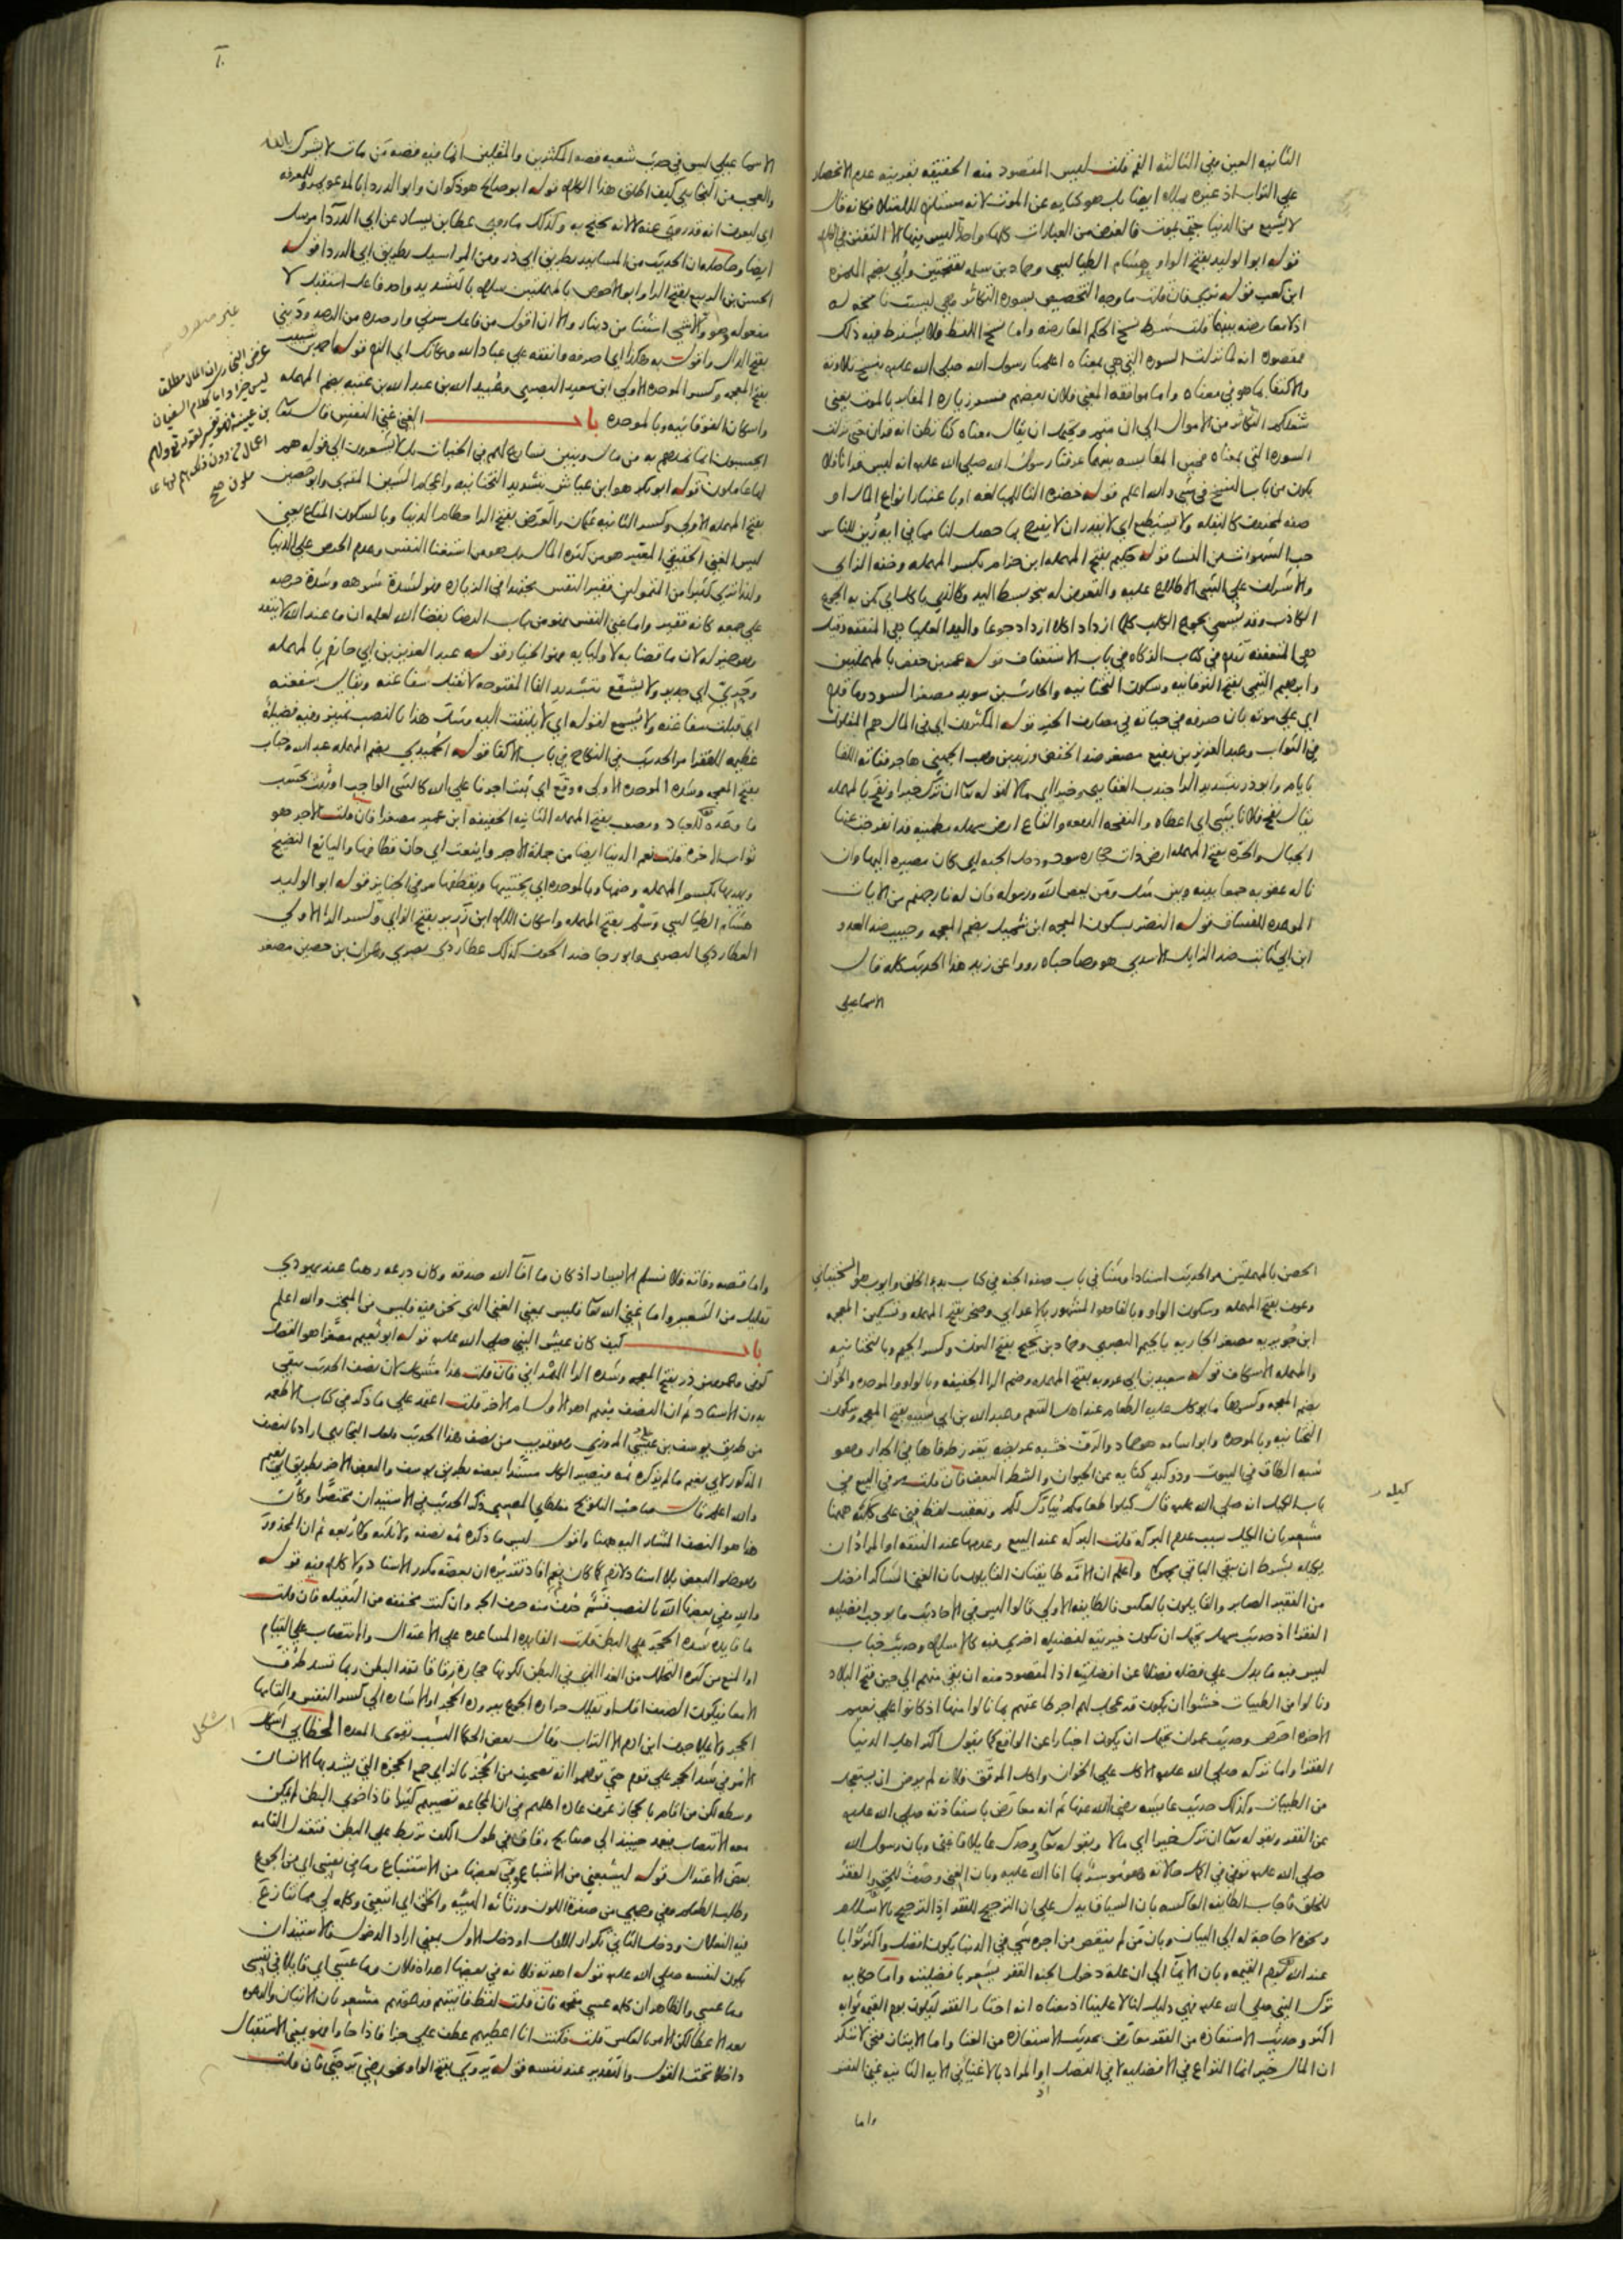 الثانيه العين وفي الثالثه الفم قلت ليس المقصود منه الحقيقه بقرينه عدم الانحصار
علي التراب اذ غيره يملاه ايضا بل هو كنايه عن الموت لانه مستلزم للامتلاء فكانه قال
لا يشبع من الدنيا حتي يموت فالغرض من العبارات كلها واحد ليس فيها الا التفنن في الكلام
قوله ابو الوليد بفتح الواو هشام الطيالسي وحماد بن سلمه بفتحتين وأبي بضم الهمزه
ابن كعب قوله نري فان قلت ما وجه التخصيص بسوره التكاثر وهي ليست ناسخه له
اذ لا معارضه بينهما قلت شرط نسخ الحكم المعارضه واما نسخ اللفظ فلا يشترط فيه ذلك
فمقصوده انه لما نزلت السوره التي هي بمعناه اعلمنا رسول الله صلي الله عليه بنسخ تلاوته
والاكتفا بما هو في معناه واما موافقه المعني فلان بعضهم فسر زياره المقابر بالموت يعني
شغلكم التكاثر من الاموال الي ان متم ويحتمل ان يقال معناه كنا نظن انه قران حتي نزلت
السوره التي بمعناه فحين المقايسه بينهما عرفنا رسول الله صلي الله عليه انه ليس قرانا فلا
يكون من باب النسخ في شي والله اعلم قوله خضره التا للمبالغه او باعتبار انواع المال او
صفه لمحذوف كالبقله ولا نستطيع اي لا نقدر ان لا نفرح بما حصل لنا مما في ايه زين للناس
حب الشهوات من النسا قوله حكيم بفتح المهمله ابن حزام بكسر المهمله وخفه الزاي
والاشراف علي الشي الاطلاع عليه والتعرض له بنحو بسط اليد وكالذي ياكل اي كمن به الجوع
الكاذب وقد يسمي بجوع الكلب كلما ازداد اكلا ازداد جوعا واليد العليا هي المنفقه وقيل
هي المتعففه تقدم في كتاب الزكاه في باب الاستعفاف قوله عمر بن حفص بالمهملتين
وابرهيم التيمي بفتح الفوقانيه وسكون التحتانيه والحارث بن سويد مصغر السود وما قدم
اي علي موته بان صرفه في حياته في مصارف الخير قوله المكثرون اي في المال هم المقلون
في الثواب وعبد العزيز بن رفيع مصغر ضد الخفض وزيد بن وهب الجهني هاجر ففاته اللقا
بايام وابو ذر بتشديد الرا جندب الغفاري وخيرا اي مالا لقوله تعا ان ترك خيرا ونفح بالمهمله
يقال نفح فلانا بشي اي اعطاه والنفحه الدفعه والقاع ارض سهله مطمئنه قد انفرجت عنها
الجبال والحره بفتح المهمله ارض ذات حجاره سود ودخل الجنه اي كان مصيره اليها وان
ناله عقوبه جمعا بينه وبين مثل ومن يعص الله ورسوله فان له نار جهنم من الايات
الموعده للفساق قوله النضر بسكون المعجمه ابن شميل بضم المعجمه وحبيب ضد العدو
ابن ابي ثابت ضد الزايل الاسدي هو وصاحباه رووا عن زيد هذا الحديث كله قال
الاسماعيلي
الاسماعيلي ليس في حديث شعبه قصه المكثرين والمقلين انما فيه قصه من مات لا يشرك بالله
والعجب من البخاري كيف اطلق هذا الكلام قوله ابو صالح هو ذكوان وابو الدردا
اي ليعرف انه قد روي عنه لا لانه يحتج به وكذلك ما روي عطا بن يسار عن ابي الدردا مرسل
ايضا وحاصله ان الحديث من المسانيد بطريق ابي ذر ومن المراسيل بطريق ابي الدردا قوله
الحسن بن الربيع بفتح الرا وابو الاحوص بالمهملتين سلام بالتشديد واحد فاعل استقبل لا
مفعوله وهو والا شي استثنا من دينار والا ان اقول من فاعل سرني وارصده من الرصد وديني
بفتح الدال واقول به هكذا اي اصرفه وانفقه علي عباد الله ومكانك اي الزم قوله احمد بن شبيب
بفتح المعجمه وكسر الموحده الاولي ابن سعيد البصري وعبيد الله بن عبد الله بن عتبه بضم المهمله
واسكان الفوقانيه وبالموحده باب الغني غني النفس قال الله تعا
ايحسبون انما نمدهم به من مال وبنين نسارع لهم في الخيرات بل لا يشعرون الي قوله هم
لها عاملون قوله ابو بكر هو ابن عياش بتشديد التحتانيه واعجام الشين المقري وابو حصين
بفتح المهمله الاولي وكسر الثانيه عثمان والعرض بفتح الرا حطام الدنيا وبالسكون المتاع يعني
ليس الغني الحقيقي المعتبر هو من كثره المال بل هو من استغنا النفس وعدم الحرص علي الدنيا
ولذا تري كثيرا من المتمولين فقير النفس مجتهدا في الزياده فهو لشده شرهه وشده حرصه
علي جمعه كانه فقير واما غني النفس فهو من باب الرضا بقضا الله لعلمه ان ما عند الله لا ينفد
وهو خير له لان ما قضا به لاوليايه فهو الخيار قوله عبد العزيز بن ابي حازم بالمهمله
وحري اي جدير ولا يشفع بتشديد الفا المفتوحه لا تقبل شفاعته ويقال شفعته
اي قبلت شفاعته ولا يسمع لقوله اي لا يلتفت اليه ومثل هذا بالنصب تمييز وفيه فضيله
عظيمه للفقرا مر الحديث في النكاح في باب الاكفا قوله الحميدي بضم المهمله عبد الله وخباب
بفتح المعجمه وشده الموحده الاولي ووقع اي ثبت اجرنا علي الله كالشي الواجب او يثبت بحسب
ما وعده للعباد ومصعب بفتح المهمله الثانيه الخفيفه ابن عمير مصغرا فان قلت الاجر هو
ثواب الاخره قلت نعم الدنيا ايضا من جمله الاجر واينعت اي حان قطافها واليانع النضيج
ويهدبها بكسر المهمله وضمها وبالموحده اي يجتنيها ويقطفها مر في الجنايز قوله ابو الوليد
هشام الطيالسي وسلم بفتح المهمله واسكان اللام ابن زرير بفتح الزاي وكسر الرا الاولي
العطاردي البصري وابو رجا ضد الخوف كذلك عطاردي بصري وعمران بن حصين مصغر
غرض البخاري ان المال مطلقا
ليس خيرا واما كلام السفيان
بن عيينه فهو تفسير لقوله تع ولهم
اعمال من دون ذلك هم لها عا
ملون صح
الحصن بالمهملتين مر الحديث اسنادا ومتنا في باب صفه الجنه في كتاب بدء الخلق وايوب هو السختياني
وعوف بفتح المهمله وسكون الواو وبالفا هو المشهور بالاعرابي وصخر بفتح المهمله وتسكين المعجمه
ابن جويريه مصغر الجاريه بالجيم البصري وحماد بن نجيح بفتح النون وكسر الجيم وبالتحتانيه
والمهمله الاسكاف قوله سعيد بن ابي عروبه بفتح المهمله وضم الرا الخفيفه وبالواو والموحده والخوان
بضم المعجمه وكسرها ما يوكل عليه الطعام عند اهل التنعم وعبد الله بن ابي شيبه بفتح المعجمه وسكون
التحتانيه وبالموحده وابو اسامه هو حماد والرف خشبه عريضه يغرز طرفاها في الجدار وهو
شبه الطاق في البيوت وذو كبد كنايه عن الحيوان والشطر البعض فان قلت مر في البيع في
باب الكيل انه صلي الله عليه قال كيلوا طعامكم يبارك لكم وتعقيب لفظ فني علي كلته ههنا
مشعر بان الكيل سبب عدم البركه قلت البركه عند البيع وعدمها عند النفقه او المراد ان
يكيله بشرط ان يبقي الباقي مجهولا واعلم ان الامه طايفتان القايلون بان الغني الشاكر افضل
من الفقير الصابر والقايلون بالعكس فالطايفه الاولي قالوا ليس في الاحاديث ما يوجب افضليه
الفقرا اذ حديث سهل يحتمل ان تكون خيريته لفضيله اخري فيه كالاسلام وحديث خباب
ليس فيه ما يدل علي فضله فضلا عن افضليته اذ المقصود منه ان بقي منهم الي حين فتح البلاد
ونالوا من الطيبات خشوا ان يكون قد عجل لهم اجر طاعتهم بما نالوا منها اذ كانوا علي نعيم
الاخره احرص وحديث عمران يحتمل ان يكون اخبارا عن الواقع كما يقول اكثر اهل الدنيا
الفقرا واما تركه صلي الله عليه الاكل علي الخوان واكل المرقق فلانه لم يرض ان يستعجل
من الطيبات وكذلك حديث عايشه رضي الله عنها ثم انه معارض باستعاذته صلي الله عليه
عن الفقر وبقوله تعا ان ترك خيرا اي مالا وبقوله تعا ووجدك عايلا فاغني وبان رسول الله
صلي الله عليه توفي في اكمل حالاته وهو موسر بما افا الله عليه وبان الغني وصف للحق والفقر
للخلق فاجاب الطايفه العاكسه بان السياق يدل علي ان الترجيح للفقر اذ الترجيح بالاسلام
ونحوه لا حاجه له الي البيان وبان من لم ينقص من اجره شي في الدنيا يكون افضل واكثر ثوابا
عند الله يوم القيمه وبان الايما الي ان عله دخول الجنه الفقر يشعر بافضليته واما حكايه
ترك النبي صلي الله عليه فهي دليل لنا لا علينا اذ معناه انه اختار الفقر ليكون يوم القيمه ثوابه
اكثر وحديث الاستعاذه من الفقر معارض بحديث الاستعاذه من الغنا واما الايتان فنحن لا ننكر
ان المال خير انما النزاع في الافضليه لا في الفضل او المراد بالاغنا في الايه الثانيه غني النفس
واما
كيله
واما قصه وفاته فلا نسلم الايسار اذ كان ما افا الله صدقه وكان درعه رهنا عند يهودي
بقليل من الشعير واما غني الله تعا فليس بمعني الغني الذي نحن فيه فليس من المبحث والله اعلم
باب كيف كان عيش النبي صلي الله عليه قوله ابو نعيم مصغرا هو الفضل
كوفي وعمر بن ذر بفتح المعجمه وشده الرا الهمداني فان قلت هذا مشكل لان نصف الحديث يبقي
بدون الاسناد ثم ان النصف مبهم اهو الاول ام الاخر قلت اعتمد علي ما ذكر في كتاب الاطعمه
من طريق يوسف بن عيسي المروزي وهو قريب من نصف هذا الحديث ولعل البخاري اراد بالنصف
المذكور لابي نعيم ما لم يذكره ثمه فيصير الكل مسندا بعضه بطريق يوسف والبعض الاخر بطريق ابي نعيم
والله اعلم قال صاحب التلويح مغلطاي المصري ذكر الحديث في الاستيذان مختصرا وكان
هذا هو النصف المشار اليه ههنا واقول ليس ما ذكره ثمه نصفه ولا ثلثه ولا ربعه ثم ان المحذور
وهو خلو البعض بلا اسناد لازم كما كان نعم افاد تقديره ان بعضه مكرر الاسناد ولا كلام فيه قوله
والله وفي بعضها الله بالنصب قسم حذف منه حرف الجر وان كنت مخففه من الثقيله فان قلت
ما فايده شده الحجر علي البطن قلت الفايده المساعده علي الاعتدال والانتصاب علي القيام
او المنع من كثره التحلل من الغذا الذي في البطن لكونها حجاره رقاقا بقدر البطن ربما تسد طرف
الامعا فيكون الضعف اقل او تقليل حراره الجوع ببروده الحجر او الاشاره الي كسر النفس والقامها
الحجر ولا يملا جوف ابن ادم الا التراب وقال بعض الحكما السبب تقوي المعده الخطابي اشكل
الامر في شد الحجر علي قوم حتي توهموا انه تصحيف من الحجز بالزاي جمع الحجزه التي يشد بها الانسان
وسطه لكن من اقام بالحجاز عرف عاده اهلها في ان المجاعه تصيبهم كثيرا فاذا خوي البطن لم يمكن
معه الانتصاب فيعمد حينئذ الي صفايح رقاق في طول الكف تربط علي البطن فتعتدل القامه
بعض الاعتدال قوله ليشبعني من الاشباع وفي بعضها من الاستتباع وما في نفسي اي من الجوع
وطلب الطعام وفي وجهي من صفره اللون ورثاثه الهيئه والحق اي اتبعني وكله لي مما تنازع
فيه الفعلان ودخل الثاني تكرار للاول او دخل الاول بمعني اراد الدخول فالاستيذان
يكون لنفسه صلي الله عليه قوله اهدته فلانه في بعضها اهداه فلان وما عسي اي قايلا في نفسي
وما عسي والظاهر ان كلمه عسي مقحمه فان قلت لفظ فاتيتهم فدعوتهم مشعر بان الاتيان والدعوه
بعد الاعطا لكن الامر بالعكس قلت فكنت انا اعطيهم عطف علي جزا فاذا جاوا فهو بمعني الاستقبال
داخلا تحت القول والتقدير عند نفسه قوله يروي بفتح الواو نحو رضي يرضي فان قلت
اشكل